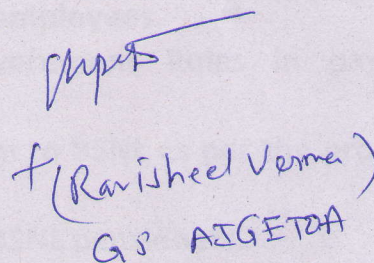 f (Ravisheel Verma)
GS AIGETOA